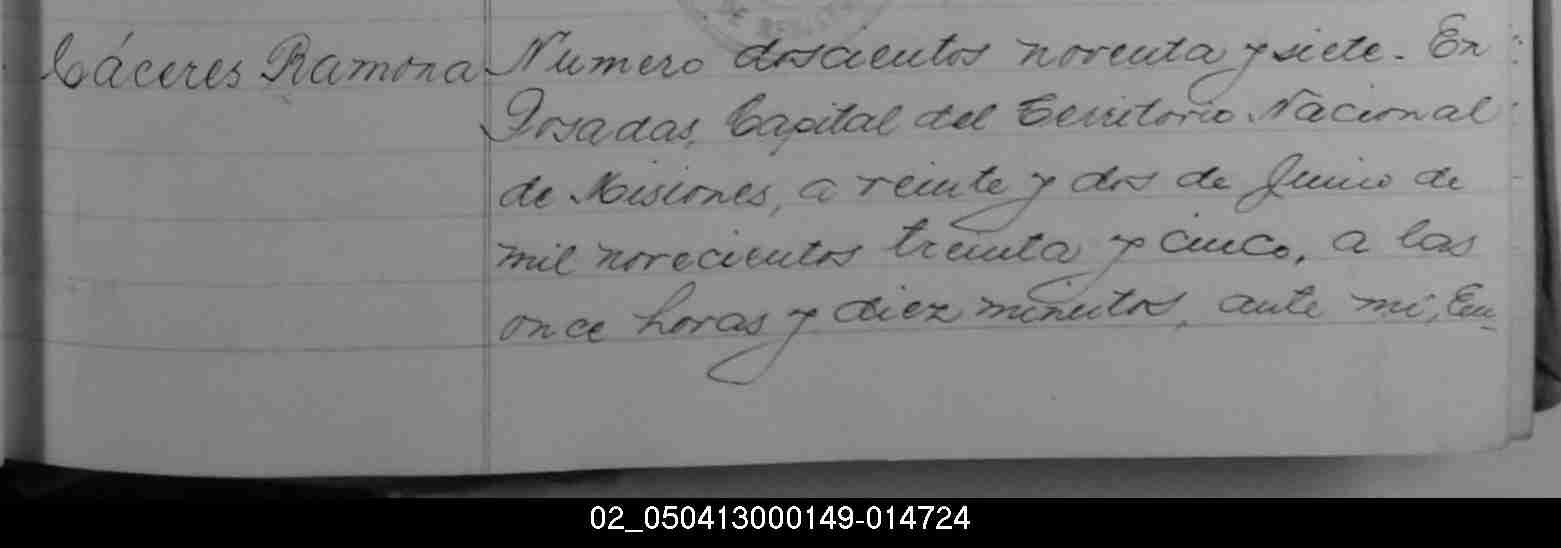 Cáceres Ramona
Numero doscientos noventa y siete. En
Posadas, Capital del Territorio Nacional
de Misiones, a veinte y dos de Junio de
mil novecientos treinta y cinco, a las
once horas y diez minutos, ante mí, Eu-
02_050413000149-014724